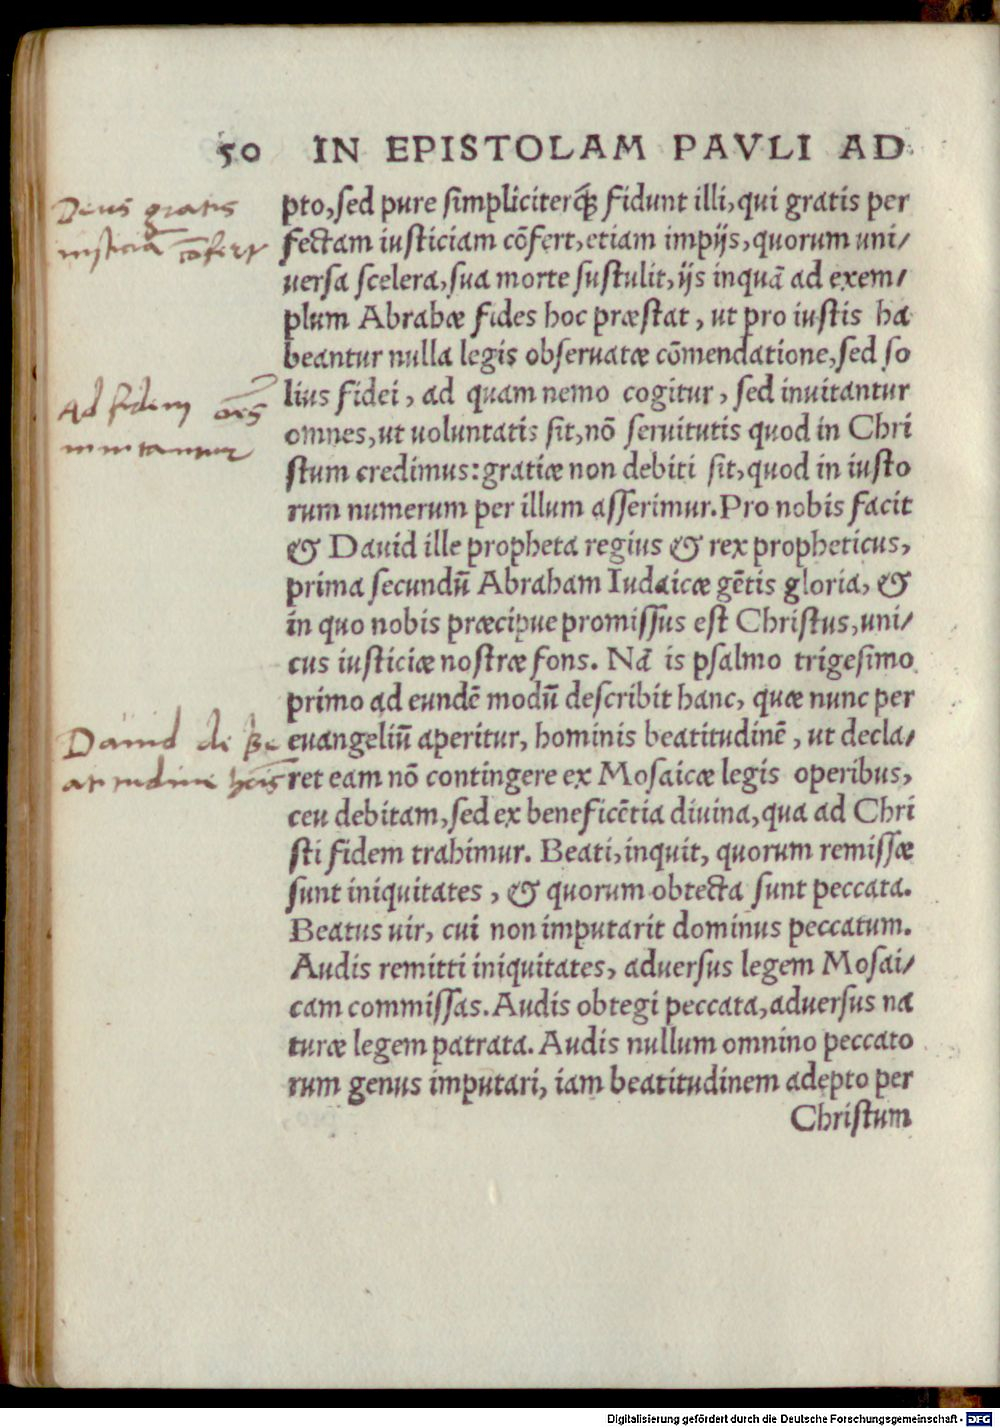 50 IN EPISTOLAM PAVLI AD
Deus gratis
iusticiā cōfert
pto, sed pure simpliciterq̃ꝫ fidunt illi, qui gratis per
fectam iusticiam cōfert, etiam impijs, quorum uni/
uersa scelera, sua morte sustulit, ijs inquā ad exem/
plum Abrahæ fides hoc præstat, ut pro iustis ha
beantur nulla legis obseruatæ cōmendatione, sed so
Ad fidem oēs
inuitantur
lius fidei, ad quam nemo cogitur, sed inuitantur
omnes, ut uoluntatis sit, nō seruitutis quod in Chri
stum credimus: gratiæ non debiti sit, quod in iusto
rum numerum per illum asserimur. Pro nobis facit
& Dauid ille propheta regius & rex propheticus,
prima secundū Abraham Iudaicæ gētis gloria, &
in quo nobis præcipue promissus est Christus, uni/
cus iusticiæ nostræ fons. Nā is psalmo trigesimo
primo ad eundē modū describit hanc, quæ nunc per
Dauid de Be
atitudine hoīs
euangeliū aperitur, hominis beatitudinē, ut decla/
ret eam nō contingere ex Mosaicæ legis operibus,
ceu debitam, sed ex beneficētia diuina, qua ad Chri
sti fidem trahimur. Beati, inquit, quorum remissæ
sunt iniquitates, & quorum obtecta sunt peccata.
Beatus uir, cui non imputarit dominus peccatum.
Audis remitti iniquitates, aduersus legem Mosai/
cam commissas. Audis obtegi peccata, aduersus na
turæ legem patrata. Audis nullum omnino peccato
rum genus imputari, iam beatitudinem adepto per
Christum
Digitalisierung gefördert durch die Deutsche Forschungsgemeinschaft - DFG